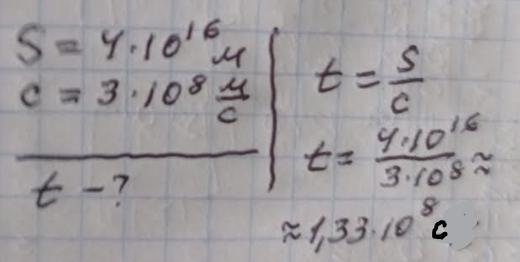 S = 4·10¹⁶ м
c = 3·10⁸ м/с
t - ?
t = S/c
t = 4·10¹⁶/3·10⁸ ≈
≈ 1,33·10⁸ с